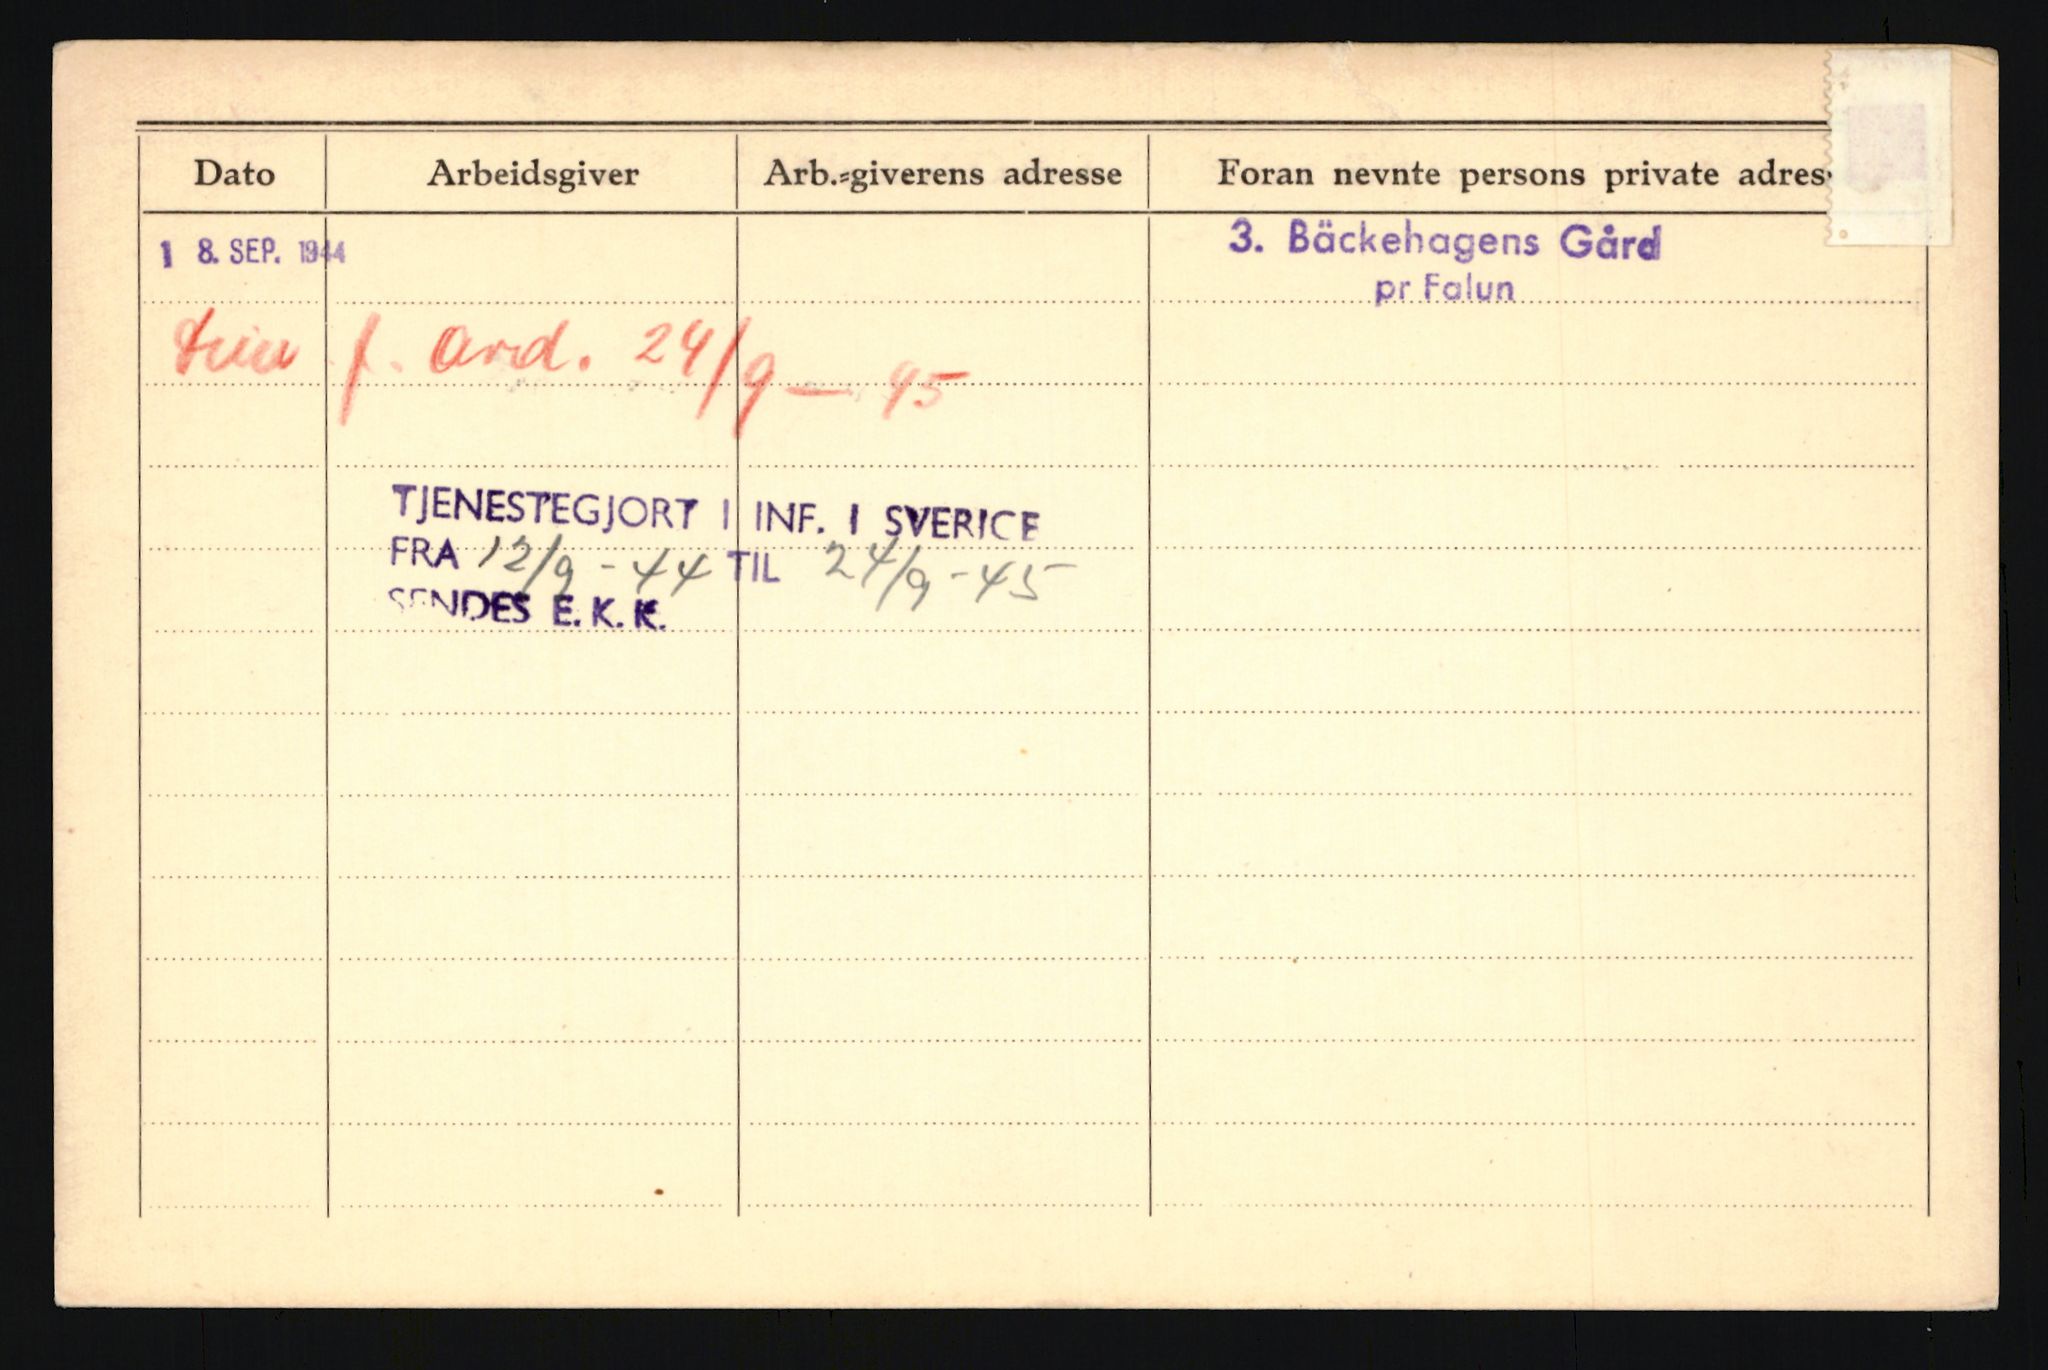 Dato Arbeidsgiver Arb.=giverens adresse Foran nevnte persons private adres
18. SEP. 1944 3. Bäckehagens Gård
pr Falun
dim f. avd. 24/9 — 45
TJENESTEGJORT I INF. I SVERICE
FRA 12/9 - 44 TIL 24/9 - 45
SENDES E. K. K.